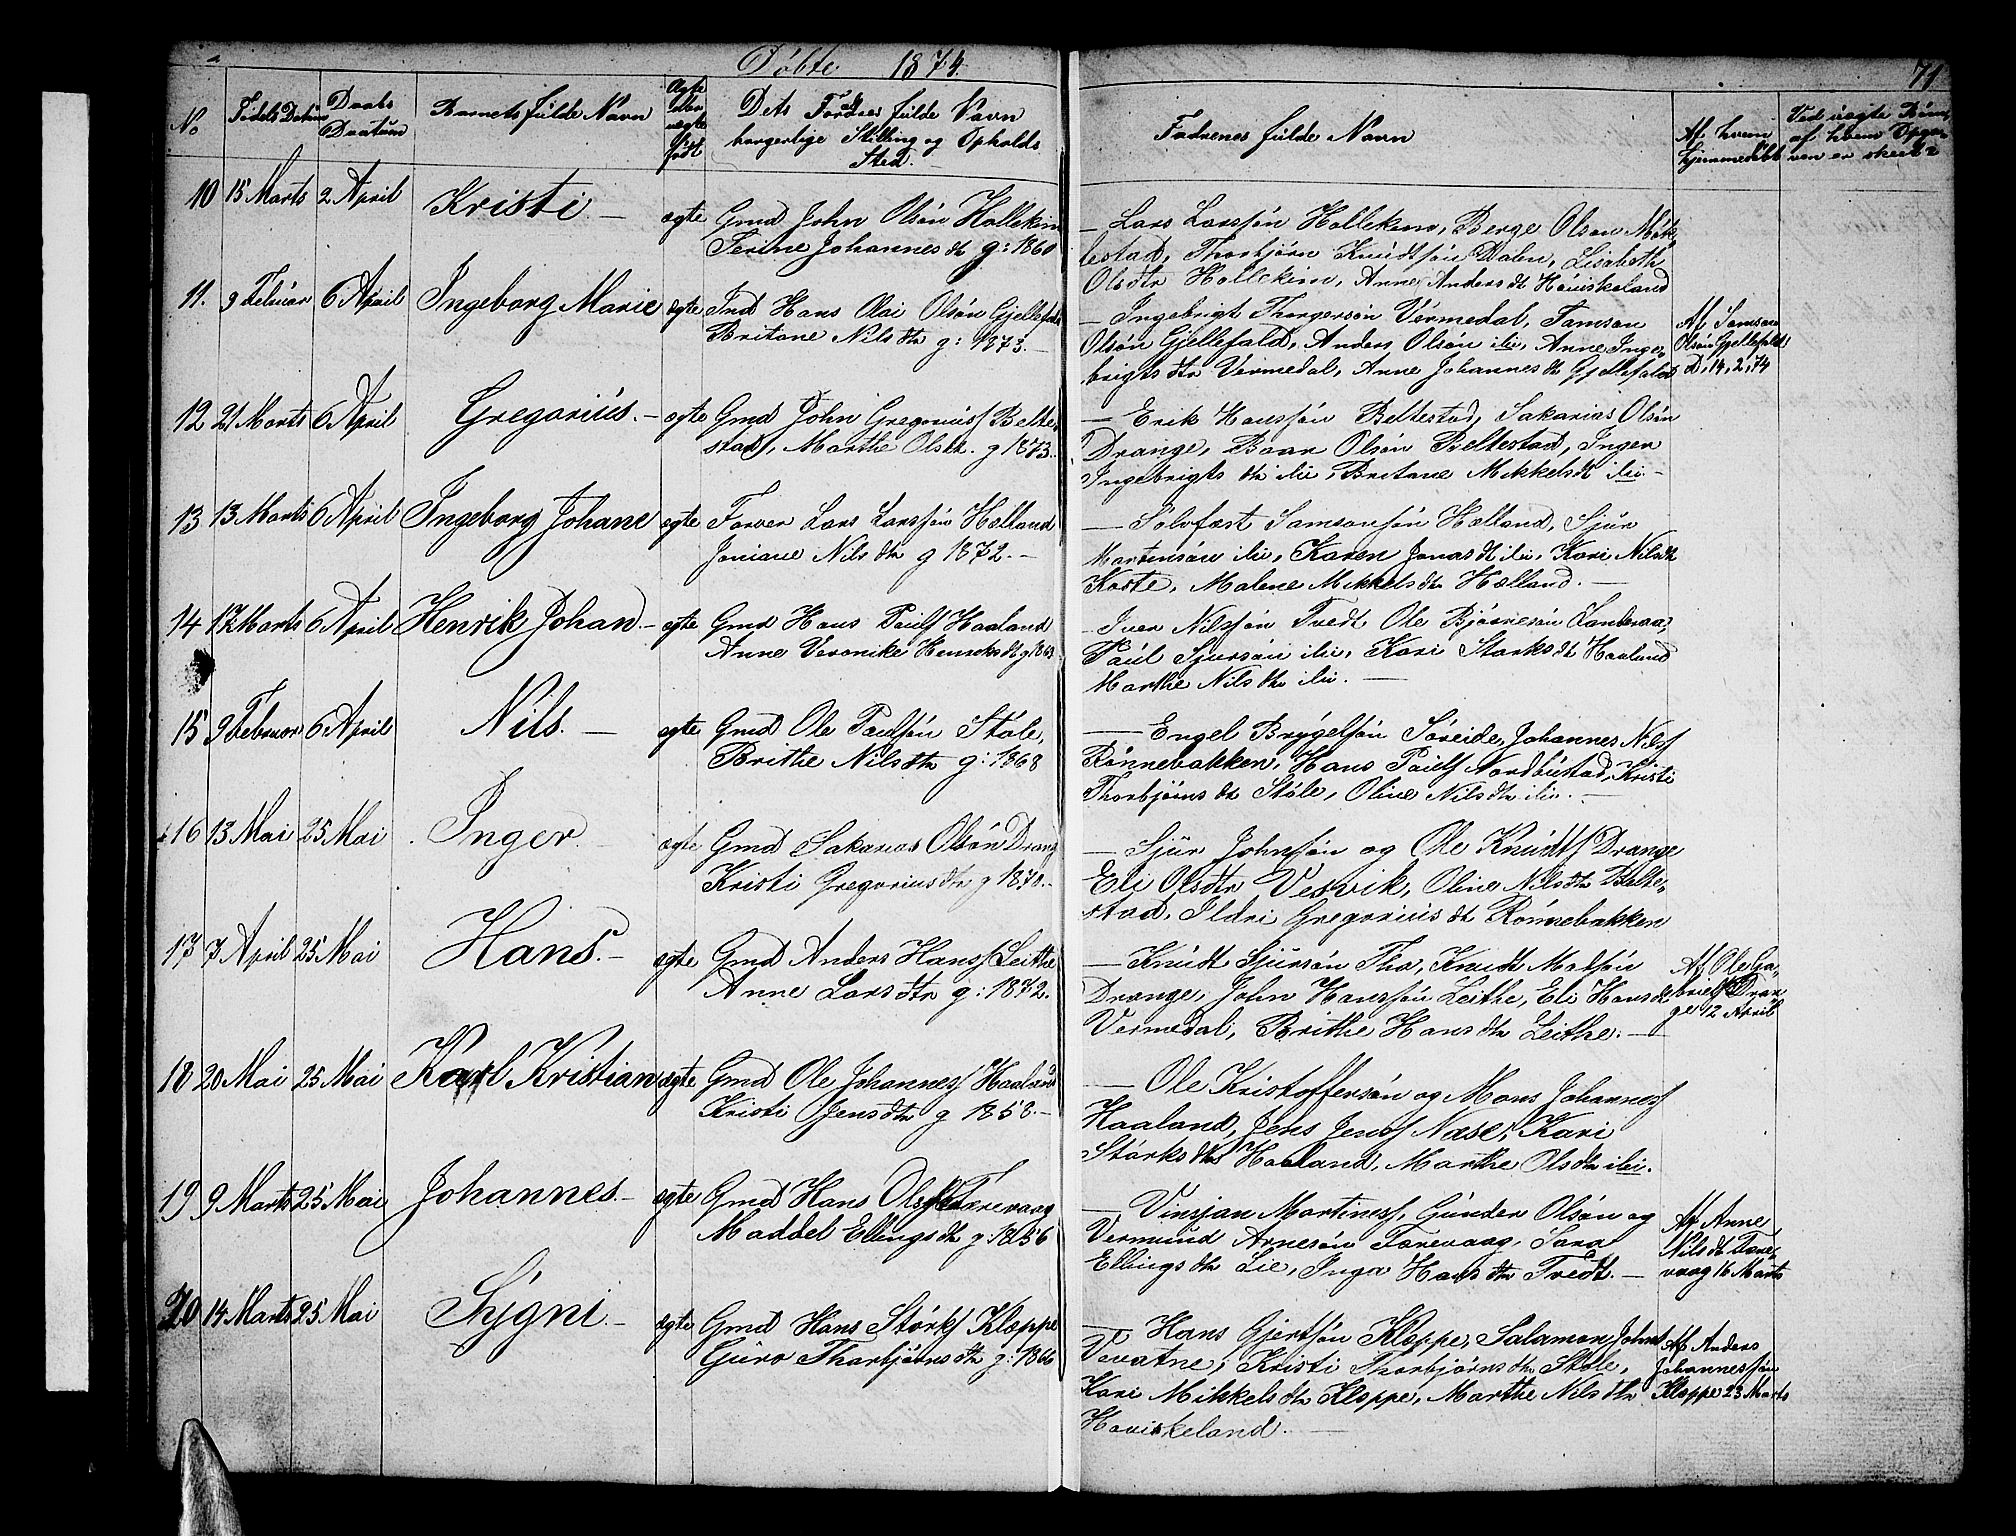 Döbte 1874.
71
No
Fødels Datum
Daabs Daatum
Barnets fulde Navn
Ægte eller uægte født
Dets Forældres fulde Navn
borgerlige Stilling og Opholds
Sted.
Faderenes fulde Navn
Af hvem hjemmedøbt
Ved uægte Børn, af hvem Opgaven er skeet
10 15 Marts 2 April Kristi. — ægte Gmd John Olsön Hollekim
Serine Johannes dt g: 1860
— Lars Larssön Hollekim, Berge Olsön Mik-
lestad, Thorbjörn Knudtsön Dalen, Lisabeth
Olsdtr Hollekim, Anne Anders dt Höviskeland
11. 9 Febuar 6 April Ingeborg Marie ægte Ind Hans Olai Olsön Gjellefald
Britane Nils dtr g: 1873. —
— Ingebrigt Thorgersön Vermedal, Samson
Olsön Gjellefald, Anders Olsön ibi, Anne Inge-
brigts dtr Vermedal, Anne Johannes dt Gjellefald
Af Samson
Olsön Gjellefald
D, 14, 2, 74
12 21 Marts 6 April Gregorius. — ægte Gmd John Gregorius Belte-
stad, Marthe Olsdt. g 1873.
— Erik Hanssön Beltestad, Sakarias Olsön
Drange, Baar Olsön Beltestad, Inger
Ingebrigts dtr ibi, Britane Mikkels dt ibi —
13 13 Marts 6 April Ingeborg Johane ægte Farver Lars Larssön Hælland
Joniane Nils dtr g 1872. —
— Solvfæst Samsonsön Hælland, Sjur
Martinsön ibi, Karen Jonas dt ibi, Kari Nilsdt
Kaste, Malene Mikkels dtr Hælland. —
14 17 Marts 6 April Henrik Johan. — ægte Gmd Hans Pauls Haaland
Anne Veronike Henriks dt g 1863
— Iver Nilssön Tvedt, Ole Bjørnesön Sandevaa,
Paul Sjursön ibi, Kari Størks dt Haaland
Marthe Nils dtr ibi. —
15 9 Februar 6 April Nils. — ægte Gmd Ole Paulsön Stöle,
Brithe Nils dtr g: 1868
— Engel Brygelsön Söreide, Johannes Nils
Rönnebakken, Hans Pauls Nordbustad, Kristi
Thorbjörns dt Stöle, Oline Nils dtr ibi. —
16 13 Mai 25 Mai Inger. ægte Gmd Sakarias Olsön Drang
Kristi Gregorius dtr g 1870. —
— Sjur Johnsön og Ole Knudts Drange
Eli Olsdtr Vesvik, Oline Nils dtr Belte-
stad, Ildri Gregorius dt Rönnebakken
17 7 April 25 Mai Hans. — ægte Gmd Anders Hans Leithe
Anne Lars dtr g: 1872.
— Knudt Sjursön Tho, Knudt Madsön
Drange, John Hanssön Leithe, Eli Hans dt
Vermedal, Brithe Hans dtr Leithe. —
Af Ole Ga-
briels Dran-
ge 12 April
18 20 Mai 25 Mai Karl Kristian ægte Gmd Ole Johannes Haaland
Kristi Jens dtr g 1858. —
— Ole Kristoffersön og Mons Johannes
Haaland, Jens Jens Næse, Kari
Störks dtr Haaland, Marthe Ols dtr ibi.
19 9 Marts 25 Mai Johannes. — ægte Gmd Hans Ols Færevaag
Maddel Ellings dtr g: 1856
— Vinsjan Martines, Gunder Olsön og
Vermund Arnesön Færevaag, Sara
Ellings dtr Lie, Inga Hans dtr Tvedt. —
Af Anne
Nils dt Fære-
vaag 16 Marts
20 14 Marts 25 Mai Sygni. — ægte Gmd Hans Störks Kleppe
Guro Thorbjörns dtr g: 1866
— Hans Gjertsön Kleppe, Salamon Johns
Vevatne, Kristi Thorbjörns dtr Stole,
Kari Mikkels dtr Kleppe, Marthe Nils dtr
Haviskeland. —
Af Anders
Johannessön
Kleppe 23 Marts